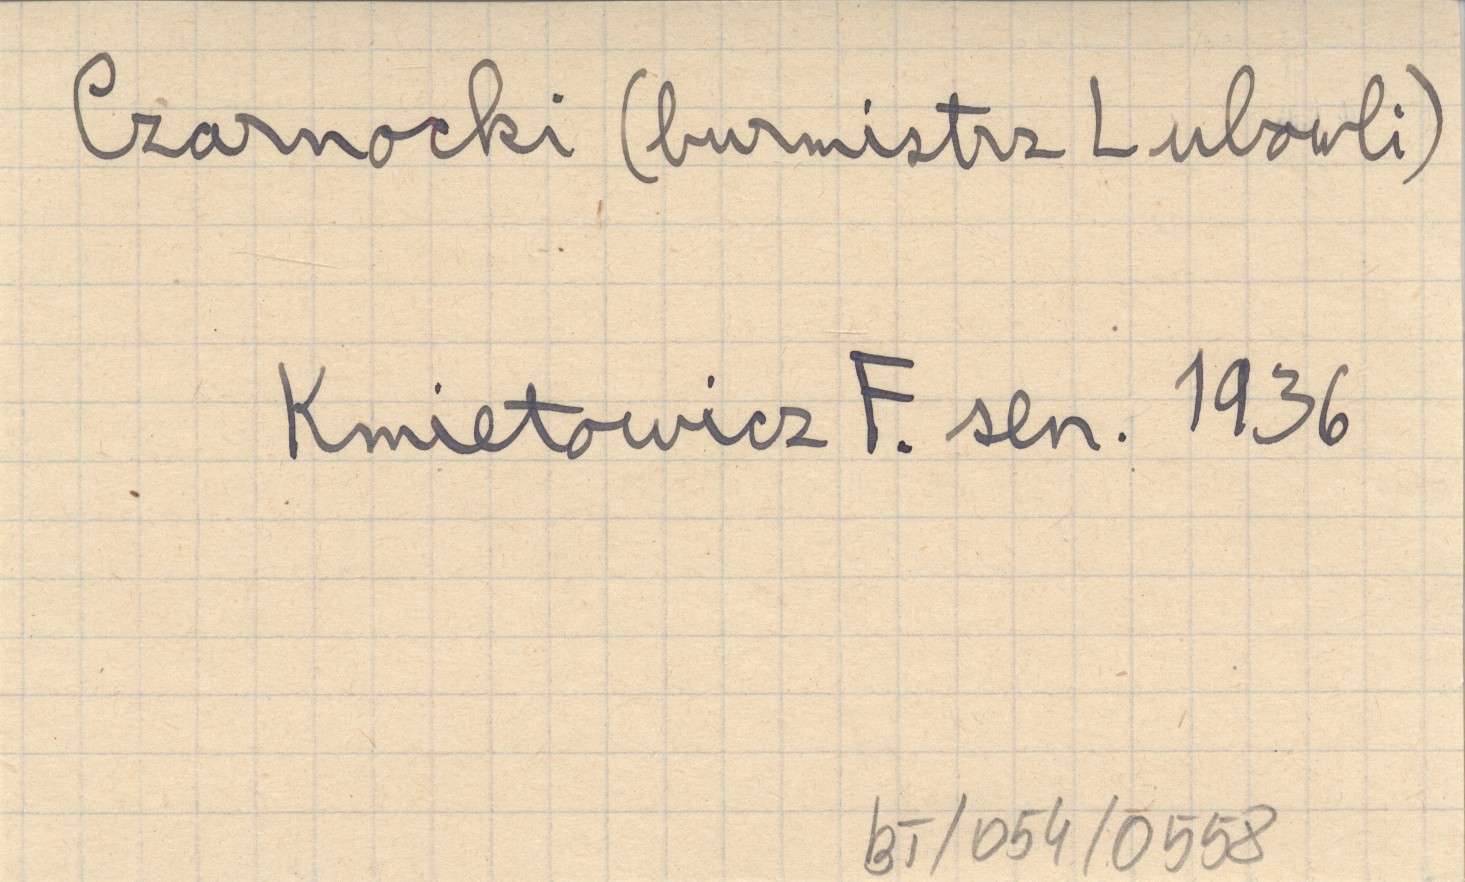 Czarnocki (burmistrz Lubowli)
Kmietowicz F. sen. 1936
BT/054/0558